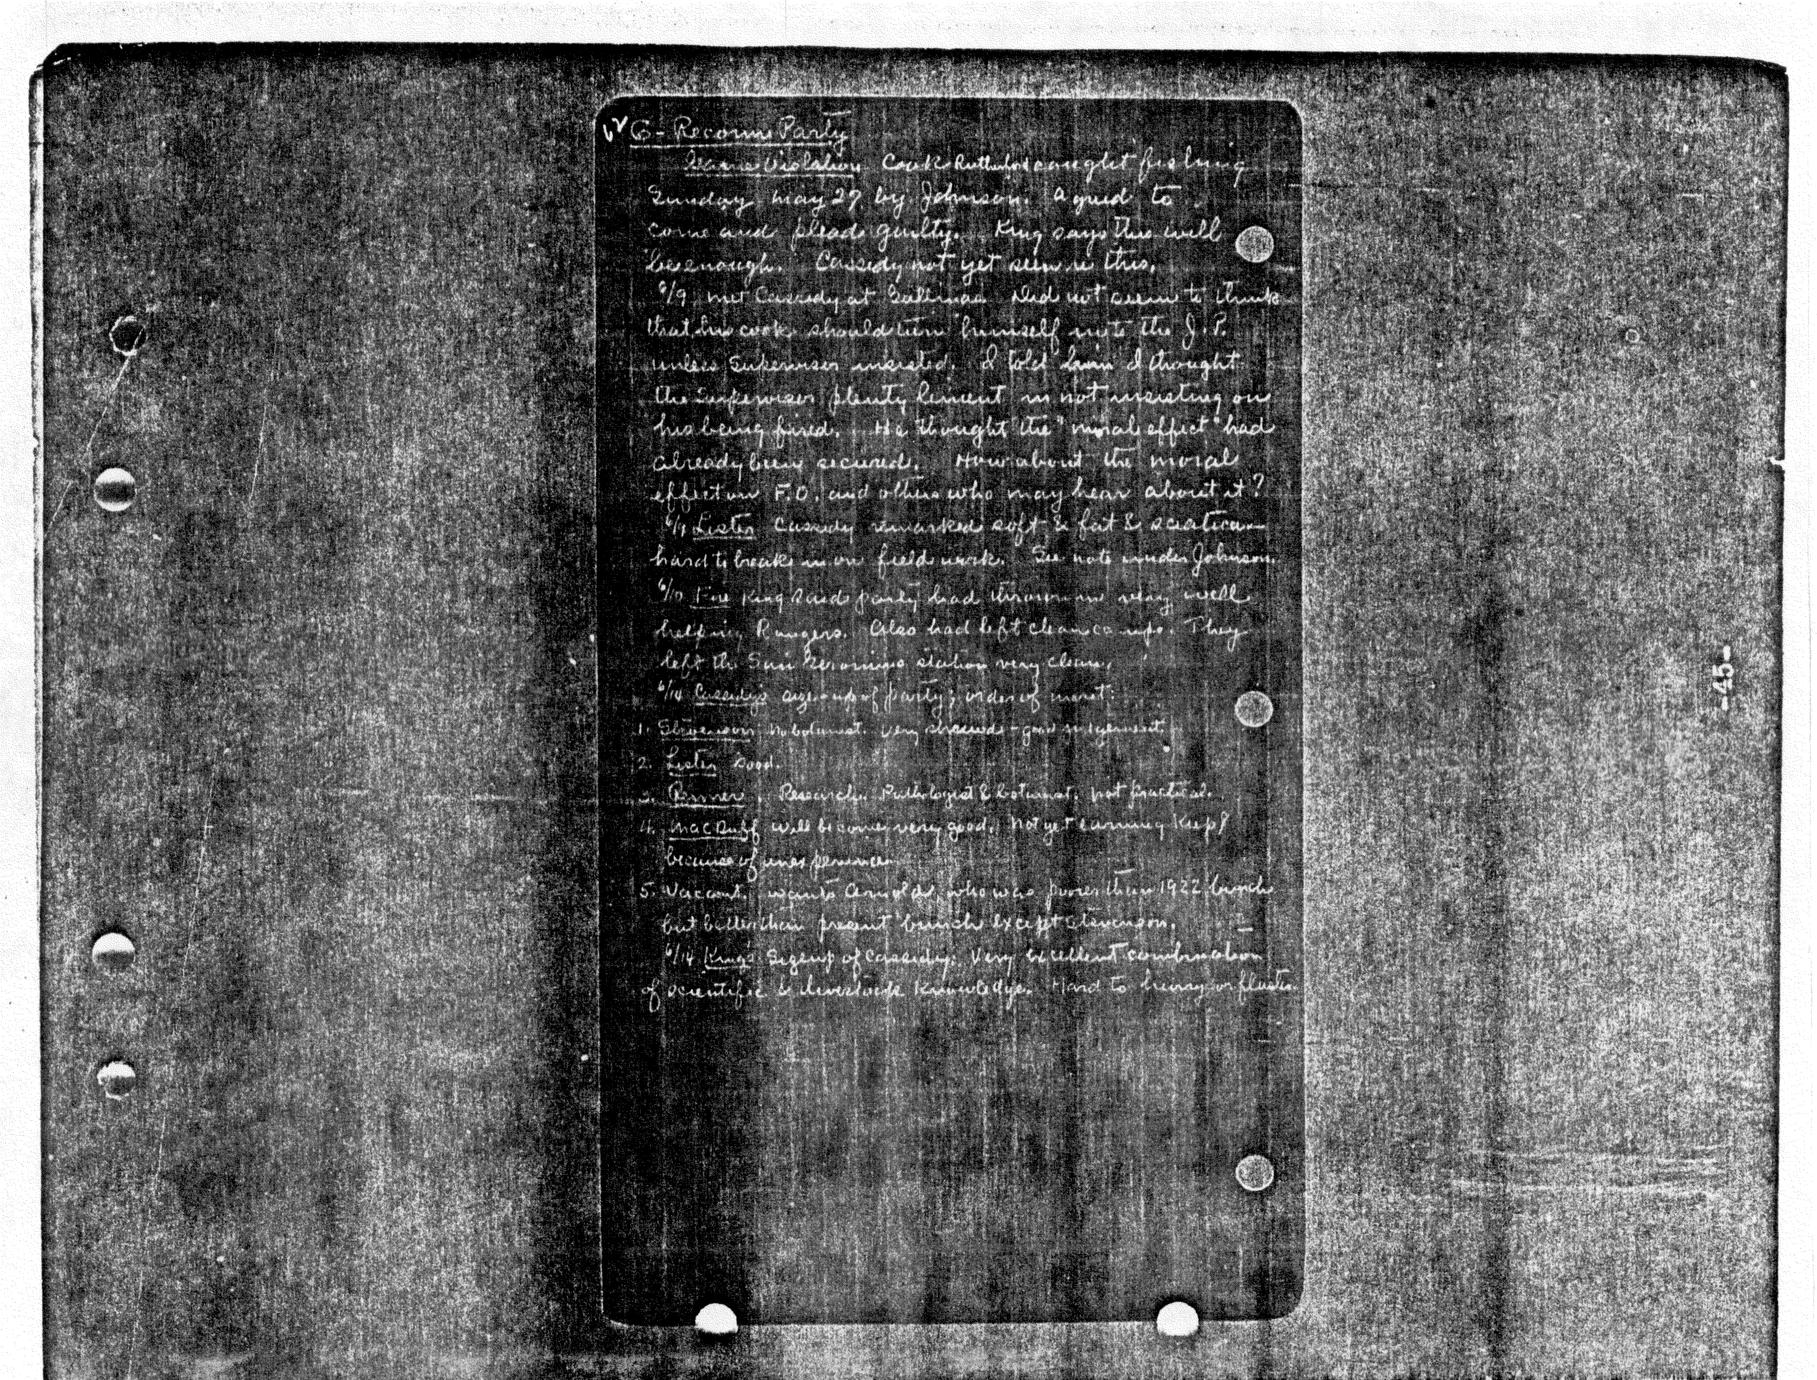 62 G - Reconn Party
Game Violation Cook caught fishing
Sunday May 27 by Johnson. Agreed to
come and plead guilty. King says this will
be enough. Cassidy not yet seen re this.
6/9 met Cassidy at Gallinas. Did not seem to think
that his cook should turn himself in to the J.P.
unless Supervisor insisted. I told him I thought
the Supervisor plenty lenient in not insisting on
his being fired. He thought the "moral effect" had
already been secured. How about the moral
effect on F.O. and others who may hear about it?
6/9 Lister Cassidy remarked soft & fat & sciatica -
hard to break in on field work. See note under Johnson.
6/10 Fire King said party had thrown in very well
helping Rangers. Also had left clean camps. They
left the San Geronimo station very clean.
6/14 Cassidy's size-up of party; order of merit:
1. Stevenson No botanist. Very shrewd - good judgement.
2. Lister Good.
3. Research. Pathologist & botanist; not practical.
4. MacDuff will become very good. Not yet earning keep
because of inexperience
5. Vacant. wants Arnold, who was poorer than 1922 bunch
but better than present bunch except Stevenson.
6/14 King's Sizeup of Cassidy: Very excellent combination
of scientific & livestock knowledge. Hard to hurry or fluster.
-45-